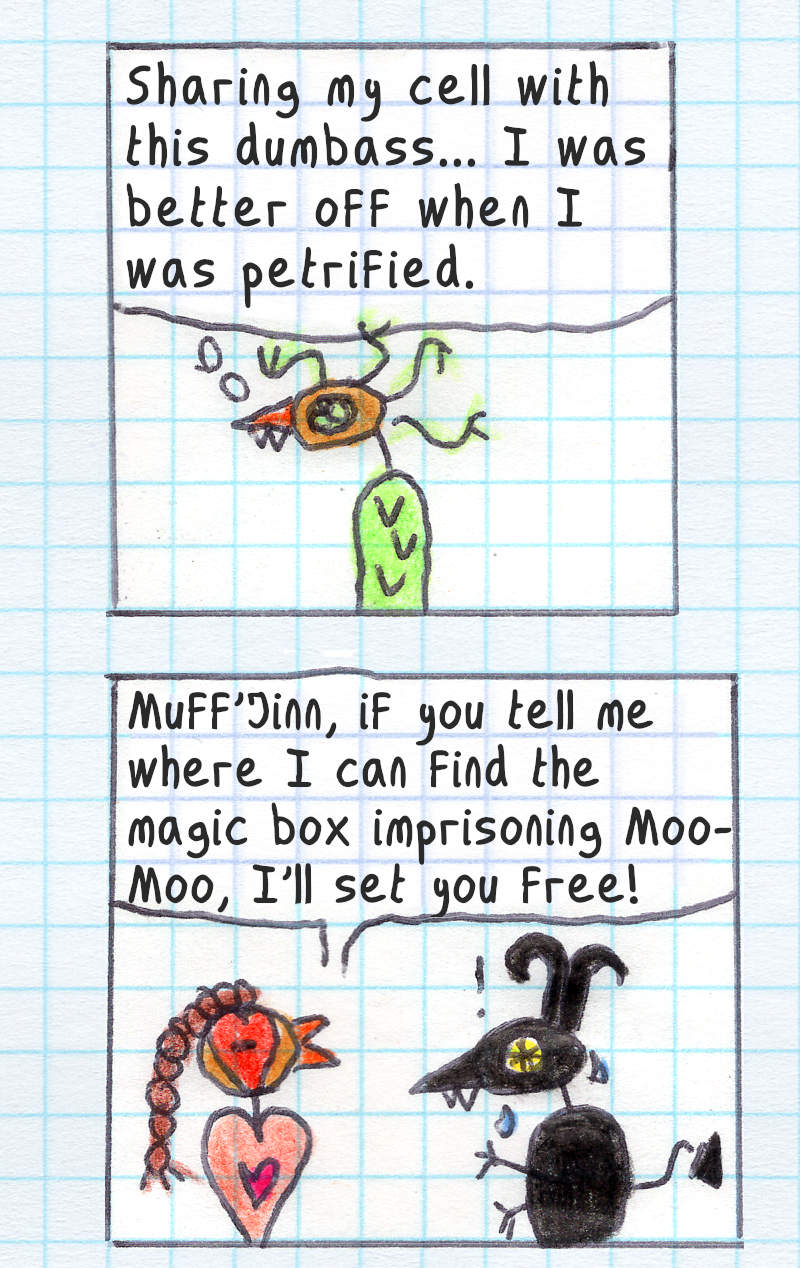 Sharing my cell with
this dumbass... I was
better off when I
was petrified.
Muff'Jinn, if you tell me
where I can find the
magic box imprisoning Moo-
Moo, I'll set you free!
!